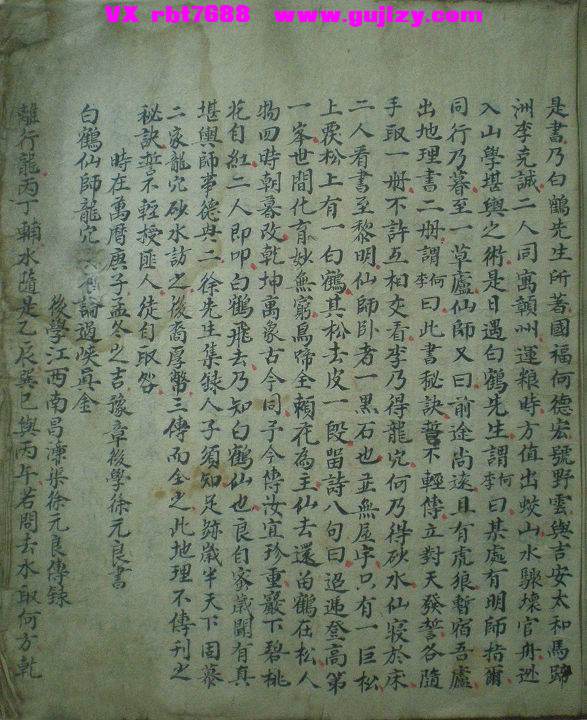 VX rbt7688 www.gujlzy.com
是書乃白鶴先生所著國福何德宏號野雲與吉安太和馬蹄
洲李克誠二人同寓贛州運粮時方值出蛟山水驟壞官舟逃
入山學堪輿之術是日遇白鶴先生謂何李曰某處有明師指爾
同行乃暮至一草廬仙師又曰前途尚遠且有虎狼暫宿吾廬
出地理書二册謂何李曰此書秘訣誓不輕傳立對天發誓各隨
手取一册不許互相交看李乃得龍穴何乃得砂水仙寢於床
二人看書至黎明仙師卧者一黑石也並無屋宇只有一巨松
上覆松上有一白鶴其松去皮一段畄詩八句曰迢遞登高第
一峯世間化育妙無窮鳥啼全賴花為主仙去還畄鶴在松人
物四時朝暮改乾坤萬象古今同予今傳汝宜珍重巖下碧桃
花自紅二人即叩白鶴飛去乃知白鶴仙也良自家嵗閒有真
堪輿師事德與二徐先生集録人子須知足跡嵗半天下因慕
二家龍穴砂水訪之後裔厚幣三傳而全之此地理不傳刊之
秘訣誓不輕授匪人徒自取咎
時在萬曆庚子孟冬之吉豫章後學徐元良書
後學江西南昌溧渠徐元良傳録
白鶴仙師龍穴論過峽真金
離行龍丙丁輔水隨是乙辰巽巳與丙午若問去水取何方乾